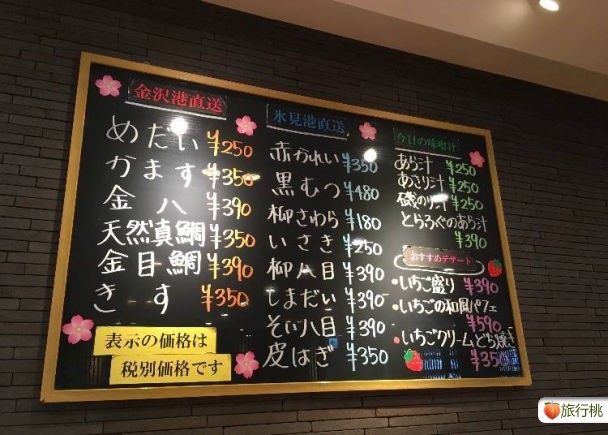 金沢港直送
めだい ¥250
かます ¥350
金八 ¥390
天然真鯛 ¥350
金目鯛 ¥390
きす ¥350
表示の価格は
税別価格です
氷見港直送
赤かれい ¥350
黒むつ ¥480
柳さわら ¥180
いさき ¥250
柳八目 ¥390
しまだい ¥390
そい八目 ¥390
皮はぎ ¥350
今日の味噌汁
あら汁 ¥250
あさり汁 ¥250
磯のり汁 ¥250
とらふぐのあら汁
¥390
おすすめデザート
・いちご盛り ¥390
・いちごの和風パフェ
¥590
・いちごクリームどら焼き
¥350
旅行桃